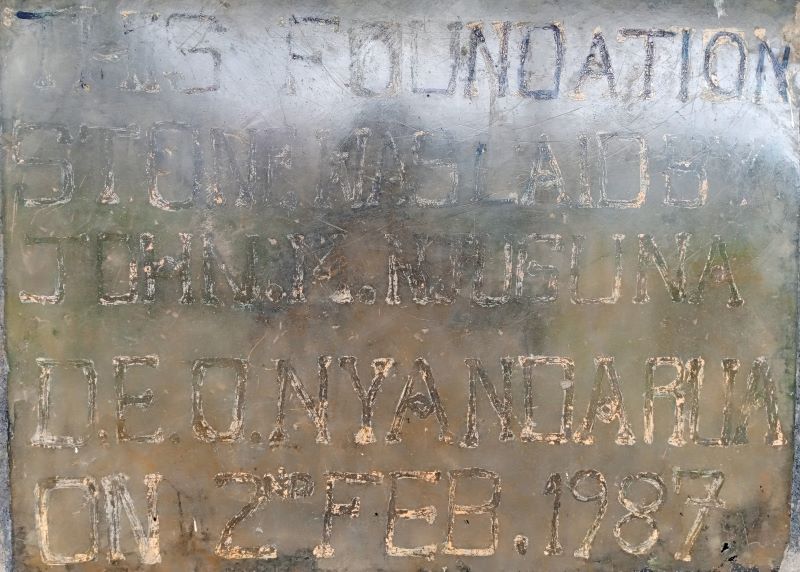 THIS FOUNDATION
STONE WAS LAID BY
JOHN.K.NJUGUNA
D.E.O.NYANDARUA
ON 2ND FEB.1987